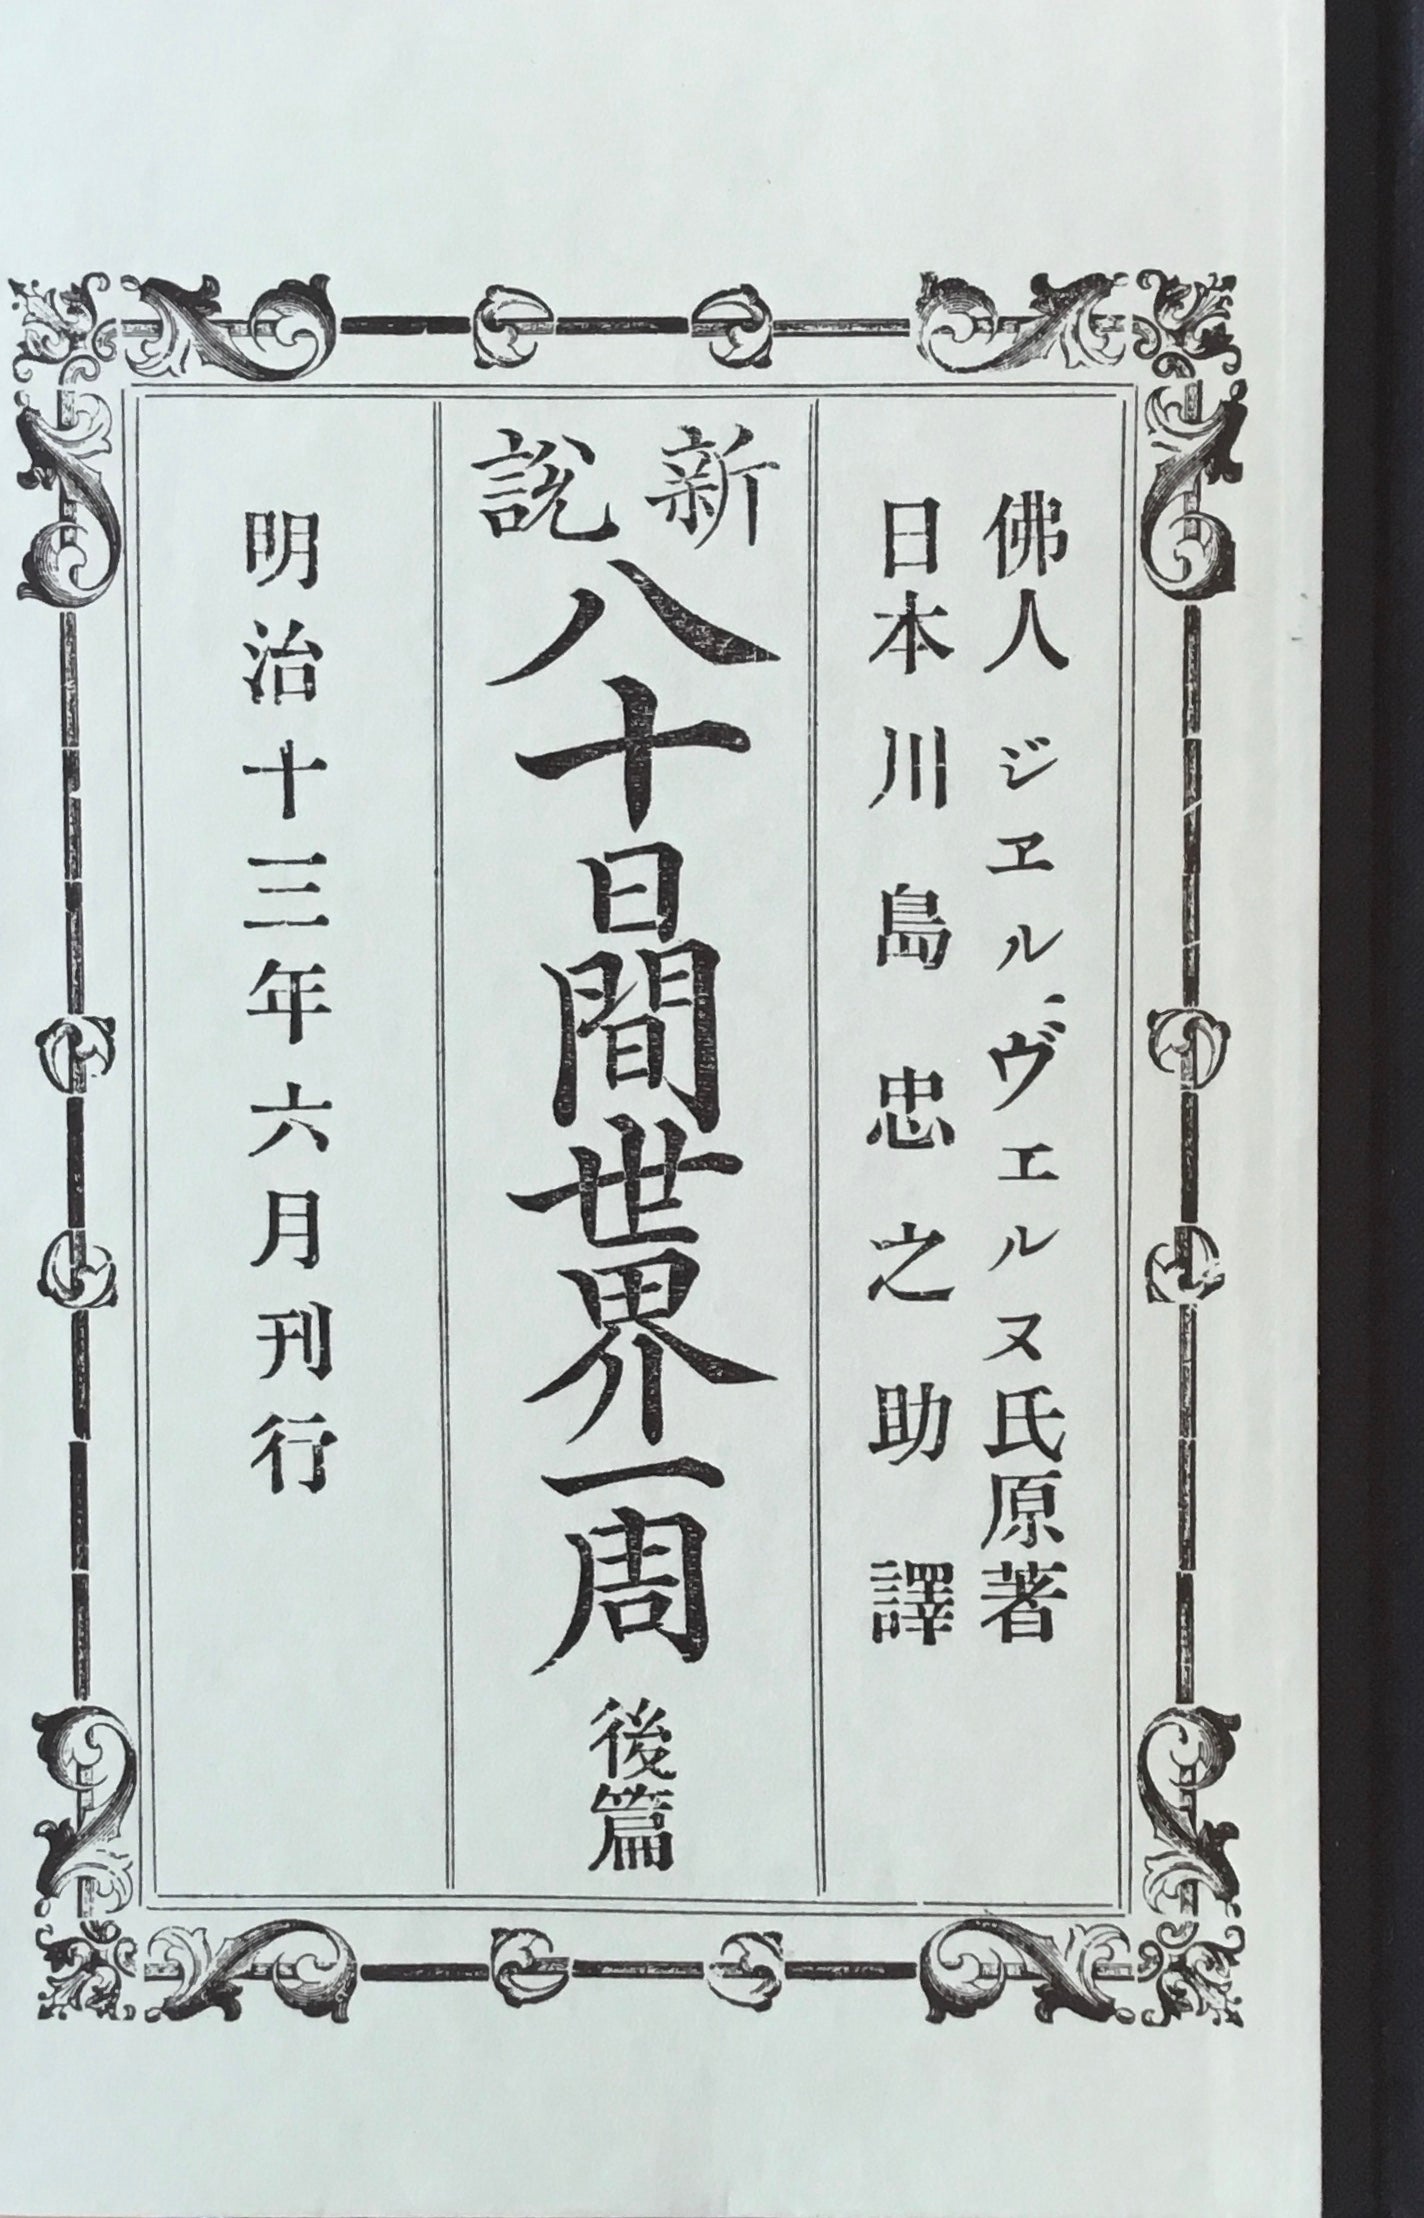 佛人ジヱル、ヴェルヌ氏原著
日本川島忠之助譯
新說
八十日間世界一周
後篇
明治十三年六月刊行